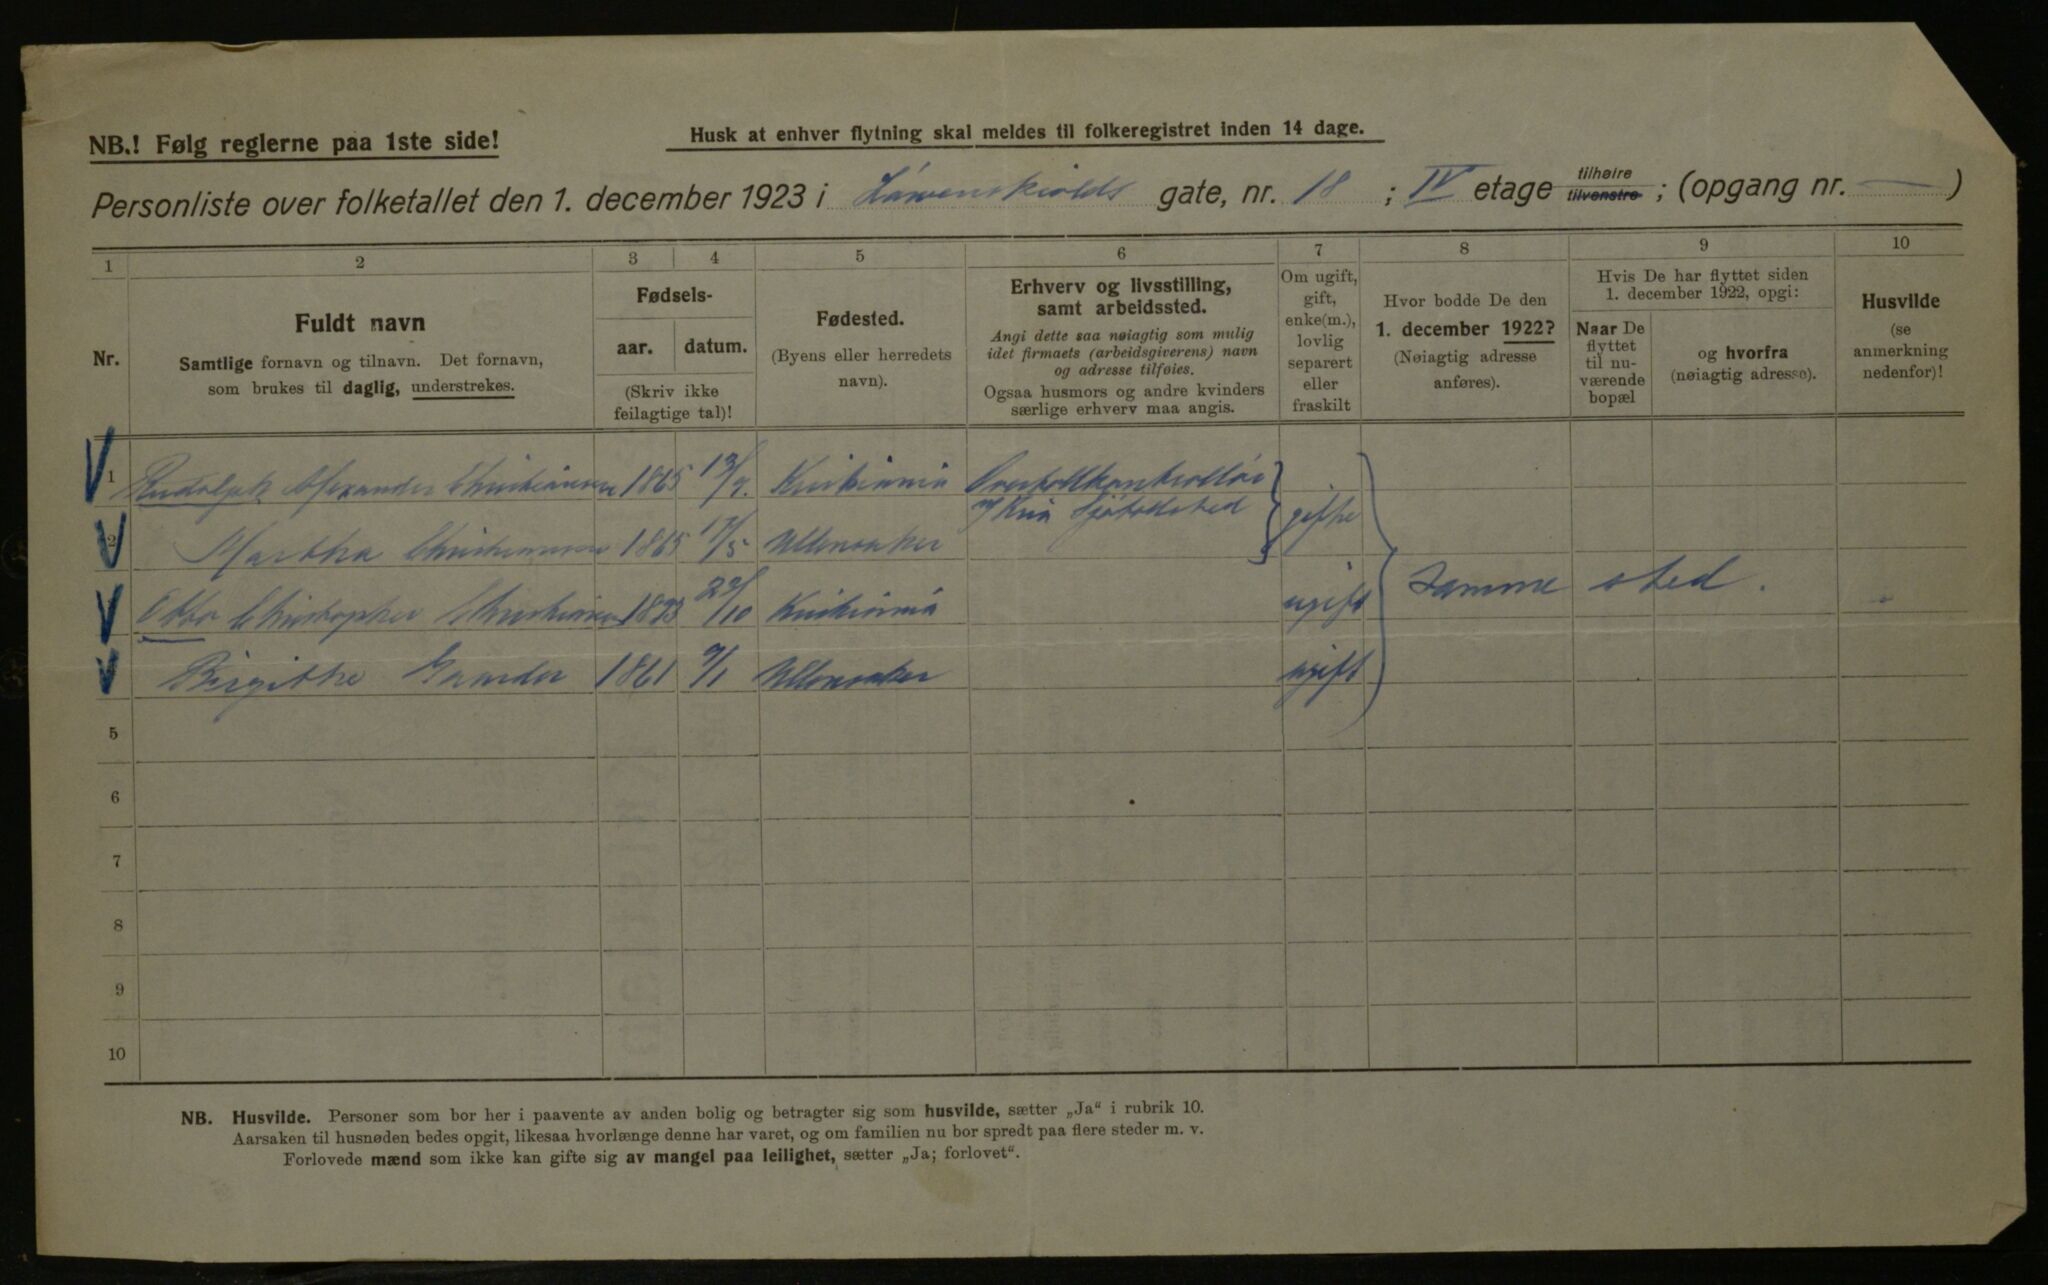 NB.! Følg reglerne paa 1ste side!
Husk at enhver flytning skal meldes til folkeregistret inden 14 dage.
Personliste over folketallet den 1. december 1923 i Løwenskiolds gate, nr. 18 ; IV etage tilhøire tilvenstre ; (opgang nr. — )
1 2 3 4 5 6 7 8 9 10
Nr.
Fuldt navn
Samtlige fornavn og tilnavn. Det fornavn,
som brukes til daglig, understrekes.
Fødsels-
aar. datum.
(Skriv ikke
feilagtige tal)!
Fødested.
(Byens eller herredets
navn).
Erhverv og livsstilling,
samt arbeidssted.
Angi dette saa nøiagtig som mulig
idet firmaets (arbeidsgiverens) navn
og adresse tilføies.
Ogsaa husmors og andre kvinders
særlige erhverv maa angis.
Om ugift,
gift,
enke(m.),
lovlig
separert
eller
fraskilt
Hvor bodde De den
1. december 1922?
(Nøiagtig adresse
anføres).
Hvis De har flyttet siden
1. december 1922, opgi:
Naar De
flyttet
til nu-
værende
bopæl
og hvorfra
(nøiagtig adresse).
Husvilde
(se
anmerkning
nedenfor)!
1 Rudolph Alexander Christiansen 1865 13/9. Kristiania Overtoldkontrollør
v/ Kria Sjøtoldsted gifte
2 Martha Christiansen 1865 17/5 Ullensaker
Otto Christopher Christiansen 1893 22/10 Kristiania ugift Samme sted.
Birgithe Gaarder 1861 9/1 Ullensaker ugift
5
6
7
8
9
10
NB. Husvilde. Personer som bor her i paavente av anden bolig og betragter sig som husvilde, sætter „Ja“ i rubrik 10.
Aarsaken til husnøden bedes opgit, likesaa hvorlænge denne har varet, og om familien nu bor spredt paa flere steder m. v.
Forlovede mænd som ikke kan gifte sig av mangel paa leilighet, sætter „Ja; forlovet“.